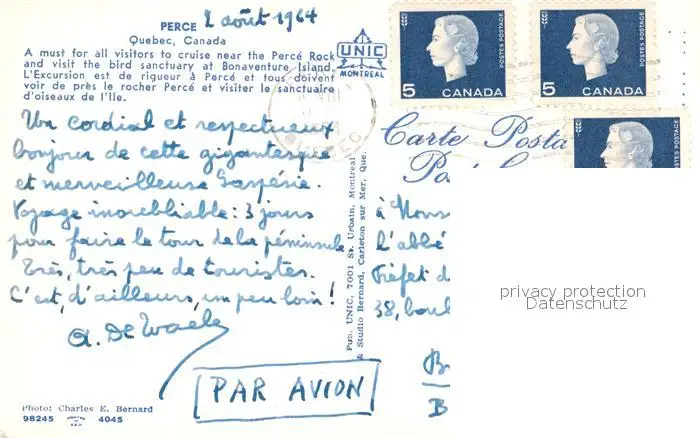 PERCE 2 août 1964
Quebec, Canada
A must for all visitors to cruise near the Percé Rock
and visit the bird sanctuary at Bonaventure Island.
L'Excursion est de rigueur à Percé et tous doivent
voir de près le rocher Percé et visiter le sanctuaire
d'oiseaux de l'Ile.
UNIC
MONTREAL
5 CANADA
POSTES POSTAGE
5 CANADA
POSTES POSTAGE
POSTES POSTAGE
Carte Posta
Un cordial et respectueux
bonjour de cette gigantesque
et merveilleuse Gaspésie.
Voyage inoubliable: 3 jours
pour faire le tour de la péninsule.
Très, très peu de touristes.
C'est, d'ailleurs, un peu loin!
A. De Waele
PAR AVION
Pub. UNIC, 7001 St. Urbain, Montreal
& Studio Bernard, Carleton sur Mer, Que.
à Mons
L'abbé
Préfet d
38, boul
B
privacy protection
Datenschutz
Photo: Charles E. Bernard
98245 4045